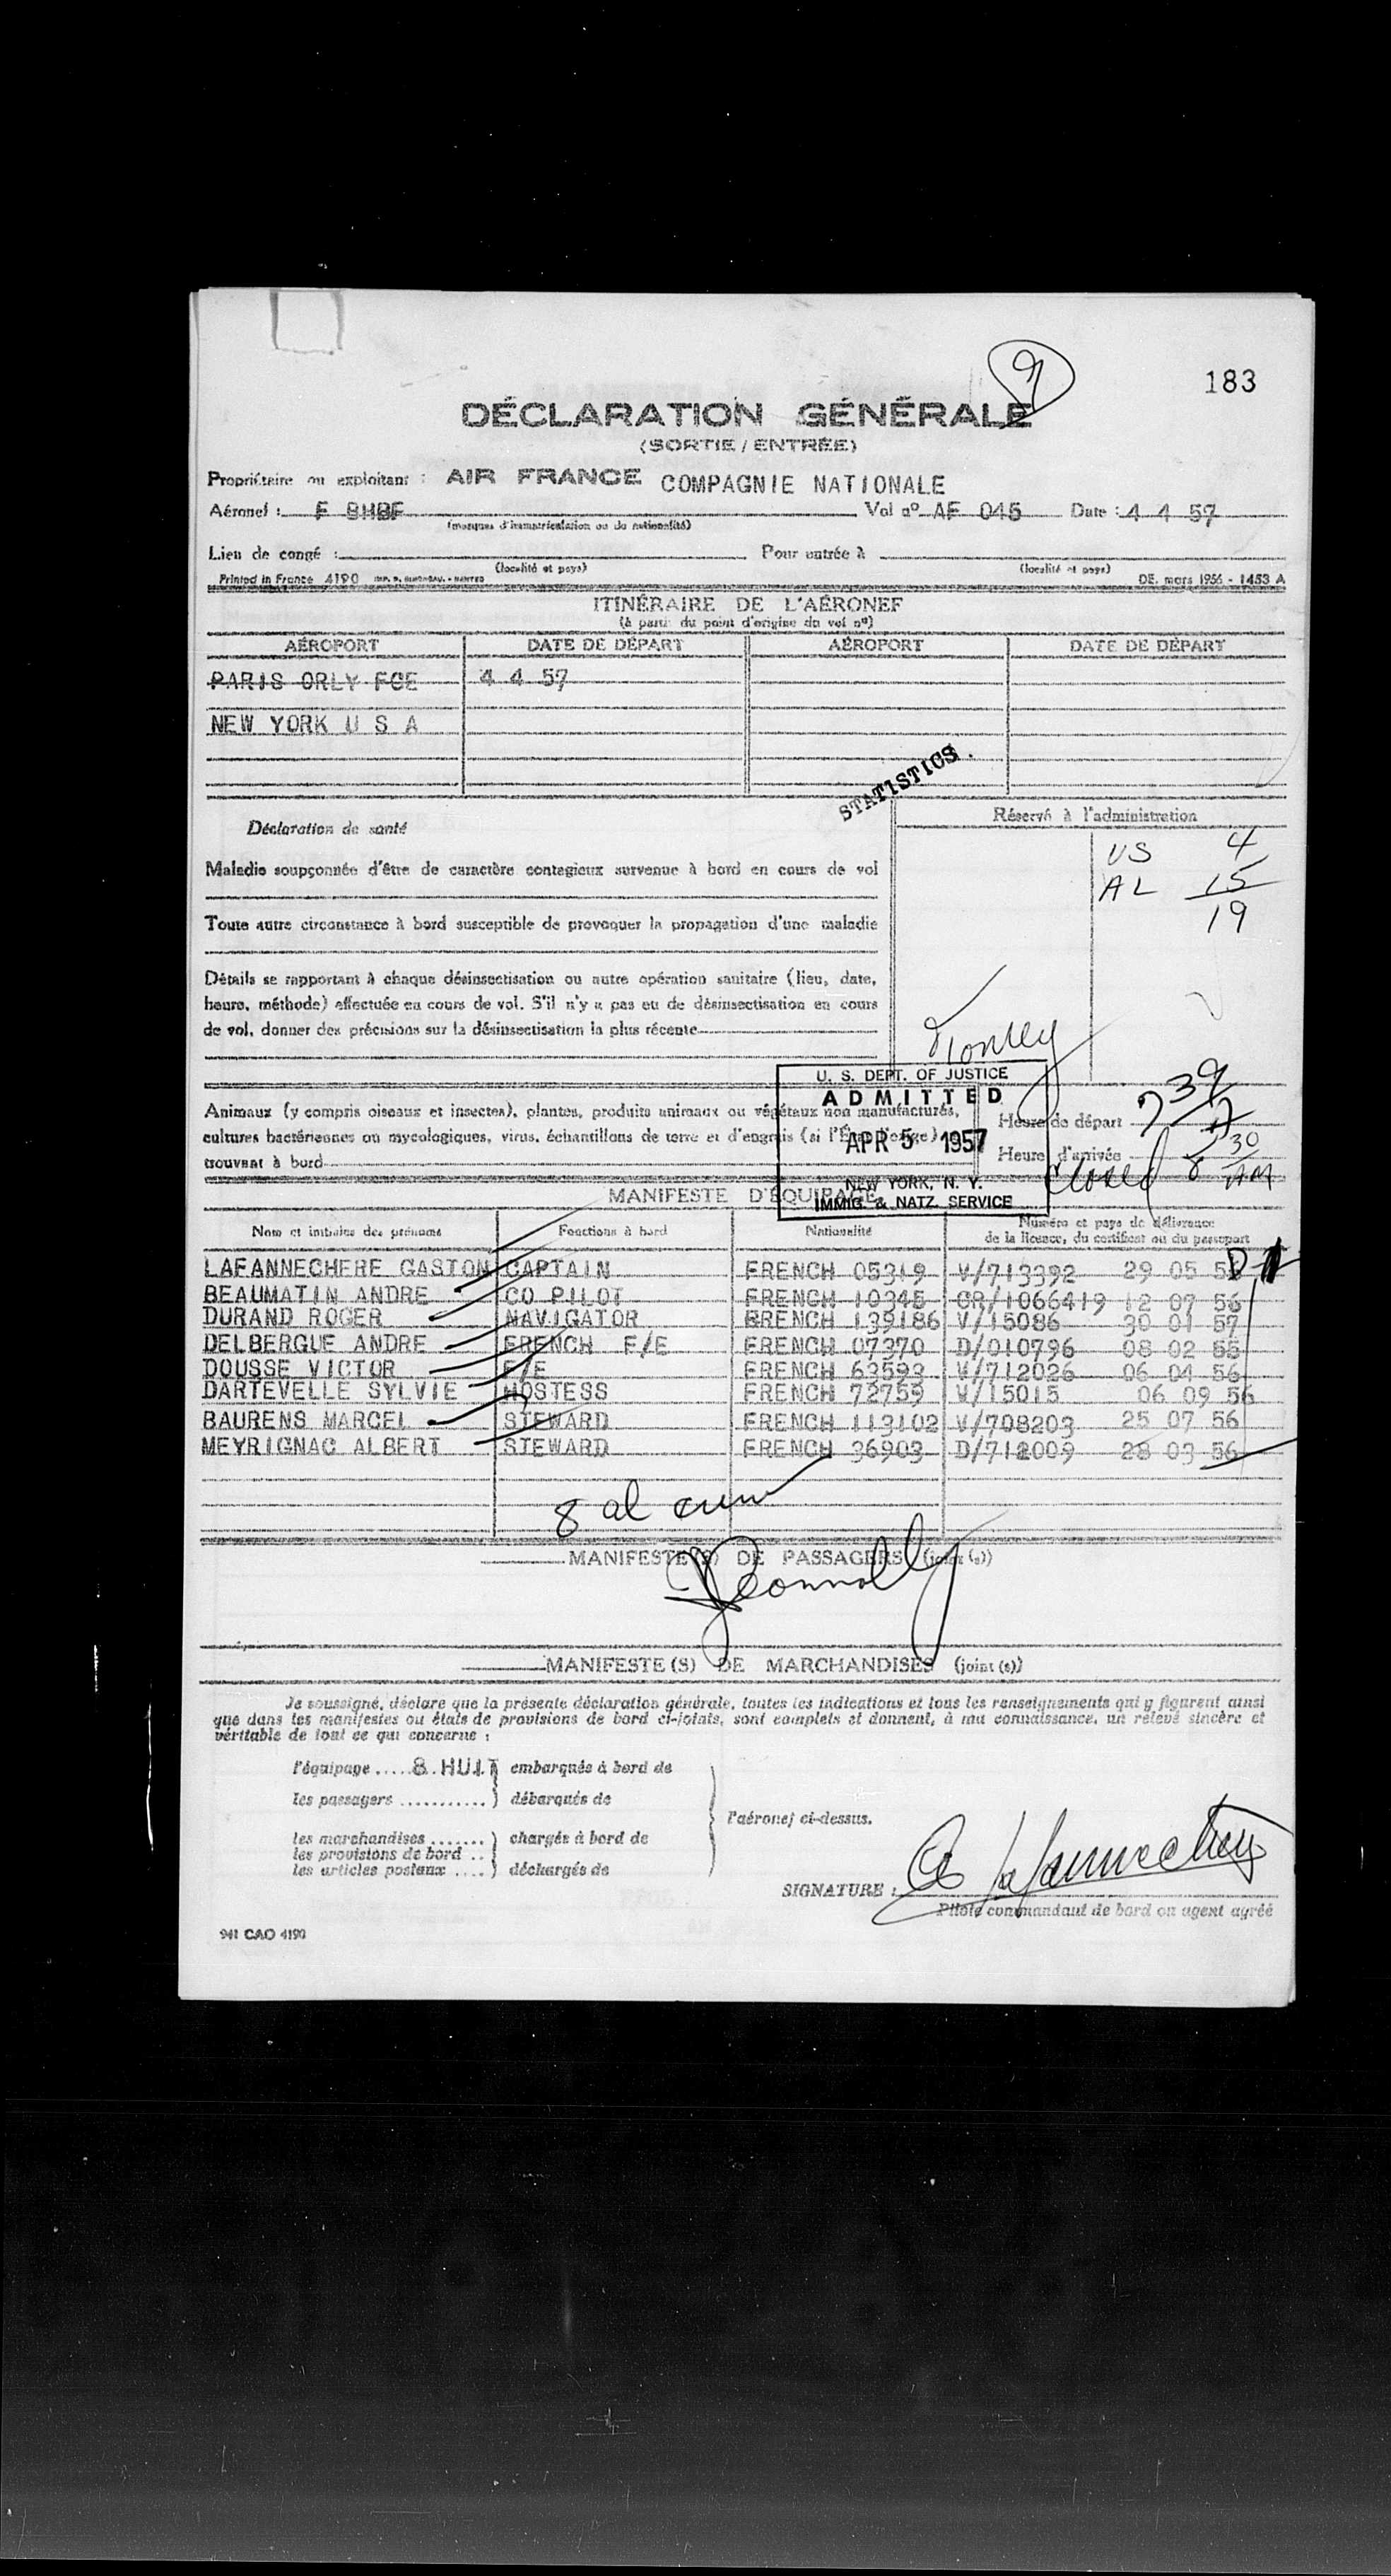 9
183
DÉCLARATION GÉNÉRALE
(SORTIE / ENTRÉE)
Propriétaire ou exploitant : AIR FRANCE COMPAGNIE NATIONALE
Aéronef : F BHBF Vol nº AF 045 Date : 4 4 57
(marques d'immatriculation ou de nationalité)
Lieu de congé : Pour entrée à
(localité et pays) (localité et pays)
Printed in France 4190 DE. mars 1956 - 1453 A
ITINÉRAIRE DE L'AÉRONEF
(à partir du point d'origine du vol nº)
AÉROPORT DATE DE DÉPART AÉROPORT DATE DE DÉPART
PARIS ORLY FCE 4 4 57
NEW YORK U S A
STATISTICS
Déclaration de santé Réservé à l'administration
US 4
AL 15
19
Maladie soupçonnée d'être de caractère contagieux survenue à bord en cours de vol
Toute autre circonstance à bord susceptible de provoquer la propagation d'une maladie
Détails se rapportant à chaque désinsectisation ou autre opération sanitaire (lieu, date,
heure, méthode) effectuée en cours de vol. S'il n'y a pas eu de désinsectisation en cours
de vol, donner des précisions sur la désinsectisation la plus récente
U. S. DEPT. OF JUSTICE
ADMITTED
APR 5 1957
NEW YORK, N. Y.
IMMIG. & NATZ. SERVICE
Animaux (y compris oiseaux et insectes), plantes, produits animaux ou végétaux non manufacturés,
cultures bactériennes ou mycologiques, virus, échantillons de terre et d'engrais (si l'État l'exige)
trouvant à bord
Heure de départ 7 39
Heure d'arrivée
closed 8 30 AM
MANIFESTE D'ÉQUIPAGE
Nom et initiales des prénoms Fonctions à bord Nationalité Numéro et pays de délivrance
de la licence, du certificat ou du passeport
LAFANNECHERE GASTON CAPTAIN FRENCH 05319 V/713392 29 05
BEAUMATIN ANDRE CO PILOT FRENCH 10345 CR/1066419 12 07 56
DURAND ROGER NAVIGATOR FRENCH 139186 V/15086 30 01 57
DELBERGUE ANDRE FRENCH F/E FRENCH 07370 D/010796 08 02 55
DOUSSE VICTOR F/E FRENCH 63593 V/712026 06 04 56
DARTEVELLE SYLVIE HOSTESS FRENCH 72759 V/15015 06 09 56
BAURENS MARCEL STEWARD FRENCH 113102 V/708203 25 07 56
MEYRIGNAC ALBERT STEWARD FRENCH 36903 D/712009 28 03 56
8 al crew
MANIFESTE(S) DE PASSAGERS (joint (s))
J Connolly
MANIFESTE(S) DE MARCHANDISES (joint (s))
Je soussigné, déclare que la présente déclaration générale, toutes les indications et tous les renseignements qui y figurent ainsi
que dans les manifestes ou états de provisions de bord ci-joints, sont complets et donnent, à ma connaissance, un relevé sincère et
véritable de tout ce qui concerne :
l'équipage ..... 8 HUIT ) embarqués à bord de
les passagers ........... ) débarqués de
l'aéronef ci-dessus.
les marchandises ....... ) chargés à bord de
les provisions de bord ..
les articles postaux .... ) déchargés de
SIGNATURE : G Lafannechere
Pilote commandant de bord ou agent agréé
941 CAO 4190